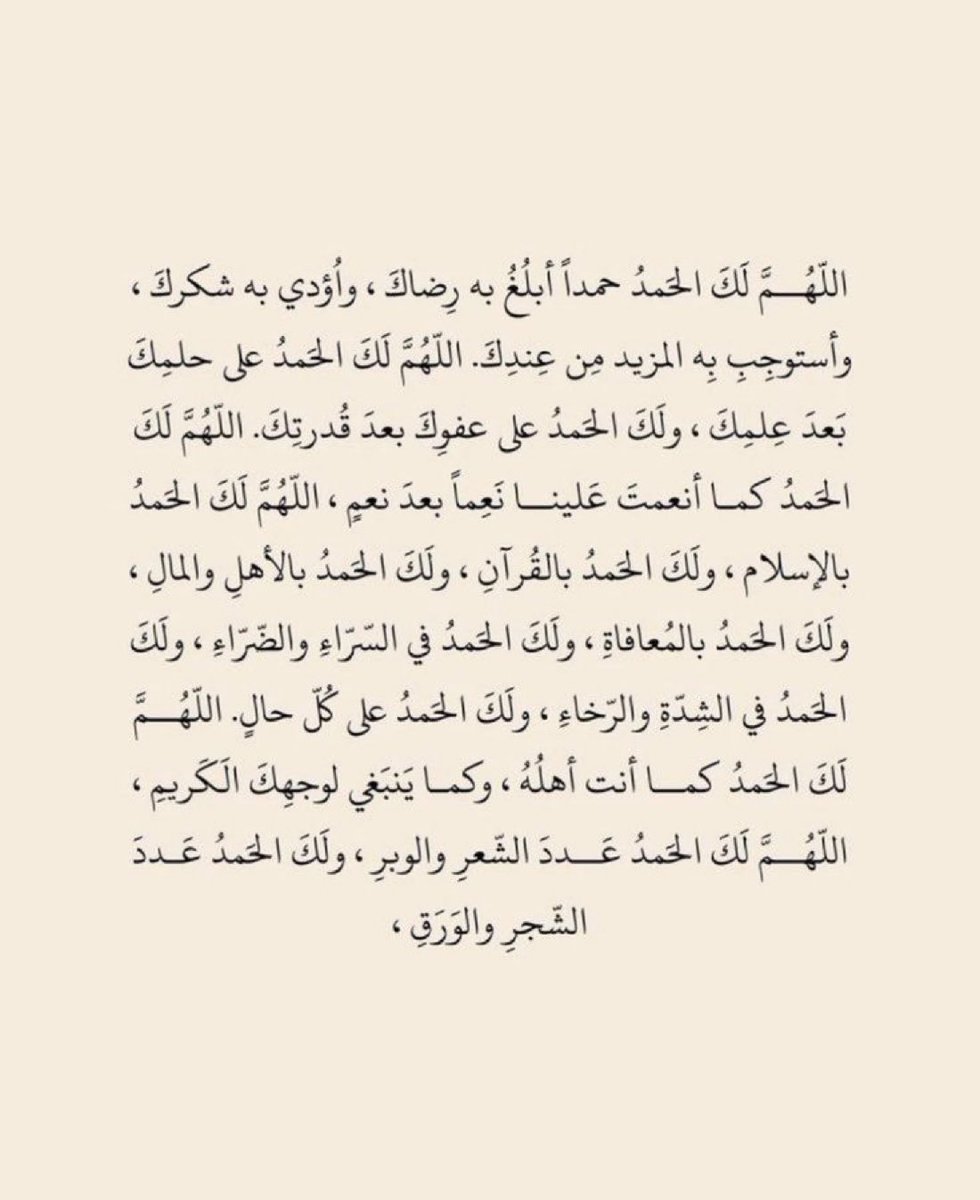 اللّهُـــمَّ لَكَ الحَمدُ حمداً أبلُغُ به رِضاكَ ، واُؤدي به شكركَ ،
وأستوجِبِ بِه المزيد مِن عِندِكَ. اللّهُمَّ لَكَ الحَمدُ على حلمِكَ
بَعدَ عِلمِكَ ، ولَكَ الحَمدُ على عفوِكَ بعدَ قُدرتِكَ. اللّهُمَّ لَكَ
الحَمدُ كمـا أنعمتَ عَلينـــا نَعِماً بعدَ نعمٍ ، اللّهُمَّ لَكَ الحَمدُ
بالإسلام ، ولَكَ الحَمدُ بالقُرآنِ ، ولَكَ الحَمدُ بالأهلِ والمالِ ،
ولَكَ الحَمدُ بالمُعافاةِ ، ولَكَ الحَمدُ في السّرّاءِ والضّرّاءِ ، ولَكَ
الحَمدُ في الشِدّةِ والرّخاءِ ، ولَكَ الحَمدُ على كُلّ حالٍ. اللّهُـــمَّ
لَكَ الحَمدُ كمـــا أنت أهلُهُ ، وكمـا يَنبَغي لوجهِكَ الَكَريمِ ،
اللّهُـــمَّ لَكَ الحَمدُ عَـــددَ الشّعرِ والوبرِ ، ولَكَ الحَمدُ عَـددَ
الشّجرِ والوَرَقِ ،